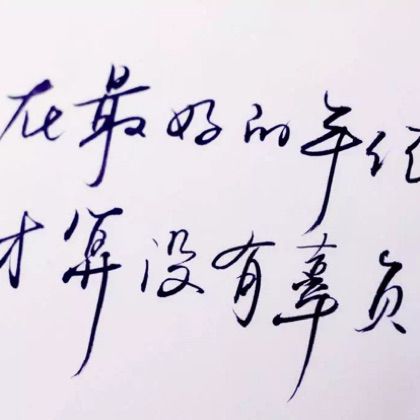 在最好的年
才算没有辜负